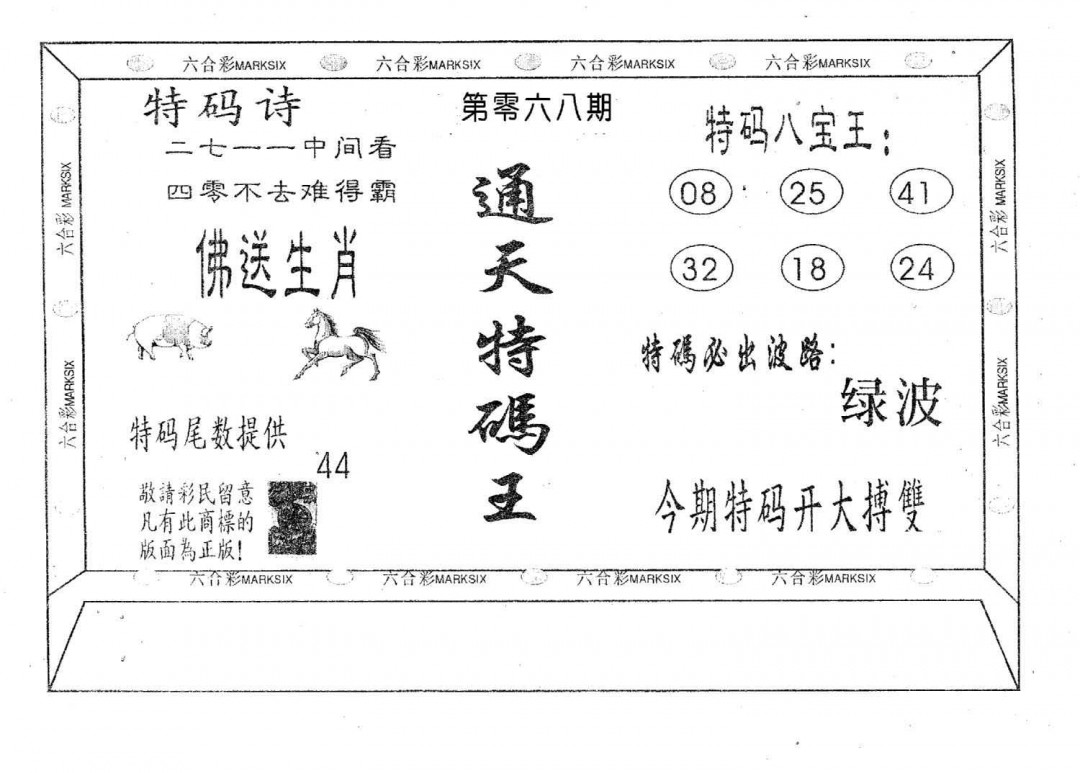 六合彩MARKSIX 六合彩MARKSIX 六合彩MARKSIX 六合彩MARKSIX
六合彩 MARKSIX
六合彩MARKSIX
特码诗
二七一一中间看
四零不去难得霸
佛送生肖
特码尾数提供
44
敬請彩民留意
凡有此商標的
版面為正版!
第零六八期
通
天
特
碼
王
特码八宝王:
08 25 41
32 18 24
特碼必出波路:
绿波
今期特码开大搏雙
六合彩 MARKSIX
六合彩MARKSIX
六合彩MARKSIX 六合彩MARKSIX 六合彩MARKSIX 六合彩MARKSIX